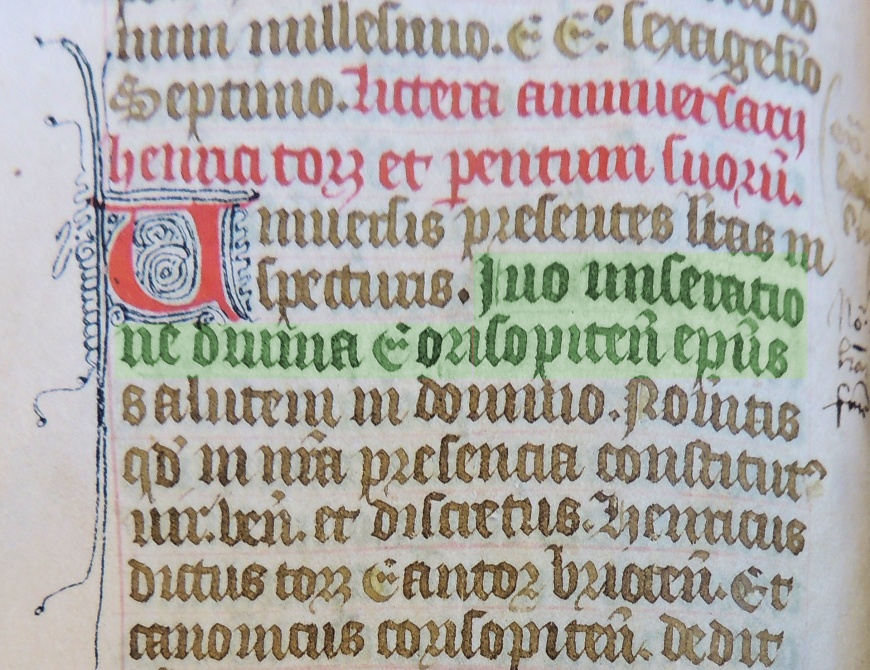 mum millesimo. C C.º sexagesīo
Septimo. Littera anniuersarij
henrici torz et pentum suorū.
Uniuersis presentes lr̄as in
specturis. Juo miseratio
ne diuina Corisopiteñ ep̄us
salutem in domino. Nou͛itis
qd' in nr̄a presencia constitutꝰ
uir. veñ. et discretus. Henricus
dictus torz Cantor briocen̄. Et
canonicus corisopiteñ. dedit